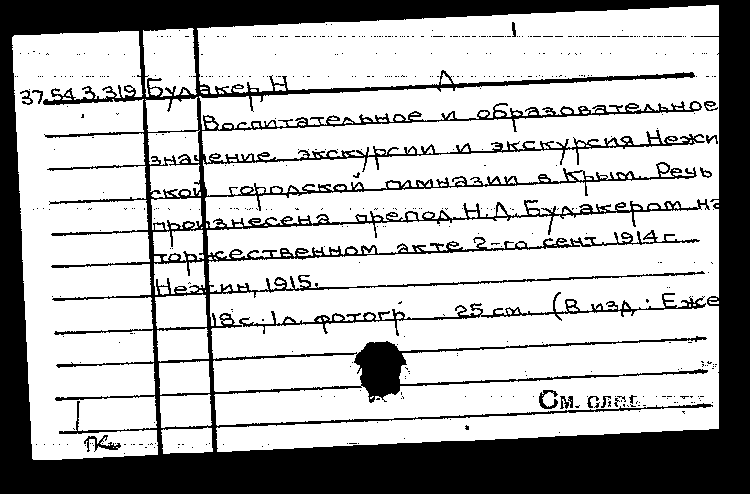 37.54.3.319 Будакер, Н Д
Воспитательное и образовательное
значение экскурсии и экскурсия Нежи
ской городской гимназии в Крым. Речь
произнесена препод. Н.Д. Будакером на
торжественном акте 2-го сент. 1914 г.
Нежин, 1915.
18 с.; 1 л. фотогр. 25 см. (В изд.: Еже
См. след.